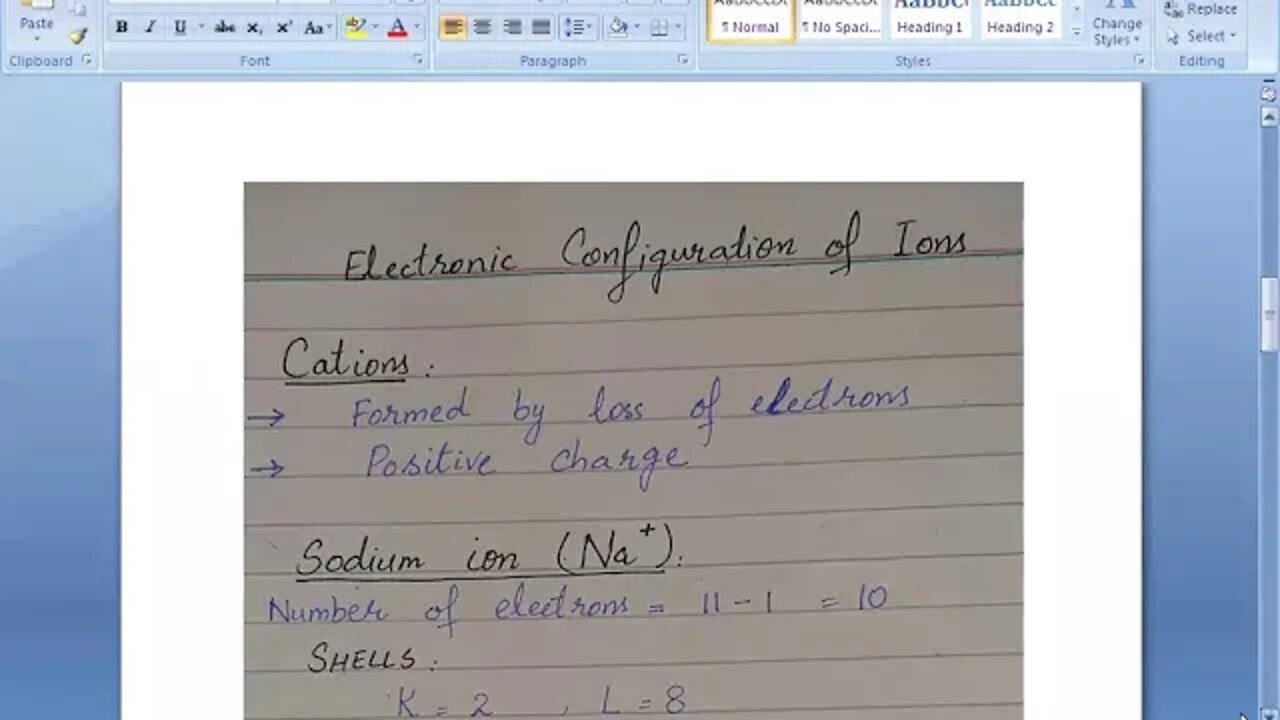 Paste
B I U abc x, x' Aa A
AaBbCcDc AaBbCcDc AaBbC AaBbCc
¶ Normal ¶ No Spaci... Heading 1 Heading 2
Change
Styles
Replace
Select
Clipboard Font Paragraph Styles Editing
Electronic Configuration of Ions
Cations :
→ Formed by loss of electrons
→ Positive charge
Sodium ion (Na⁺).
Number of electrons = 11 - 1 = 10
SHELLS :
K = 2 , L = 8